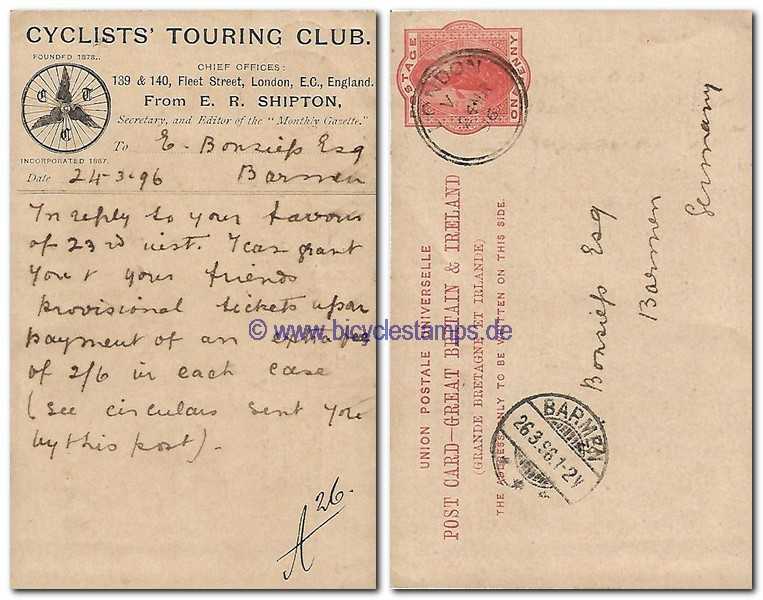 CYCLISTS' TOURING CLUB.
FOUNDED 1878.
CHIEF OFFICES:
139 & 140, Fleet Street, London, E.C., England.
From E. R. SHIPTON,
Secretary, and Editor of the "Monthly Gazette."
C T C
INCORPORATED 1887.
To E. Bonsieß Esq
Date 24·3·96 Barmen
In reply to your favour
of 23rd inst. I can grant
You & your friends
provisional tickets upon
payment of an extra fee
of 2/6 in each case
(see circulars sent you
by this post).
A 26.
© www.bicyclestamps.de
POSTAGE
ONE PENNY
LONDON
UNION POSTALE UNIVERSELLE
POST CARD—GREAT BRITAIN & IRELAND
(GRANDE BRETAGNE ET IRLANDE)
THE ADDRESS ONLY TO BE WRITTEN ON THIS SIDE.
Bonsieß Esq
Barmen
Germany
BARMEN
26.3.96.1-2V